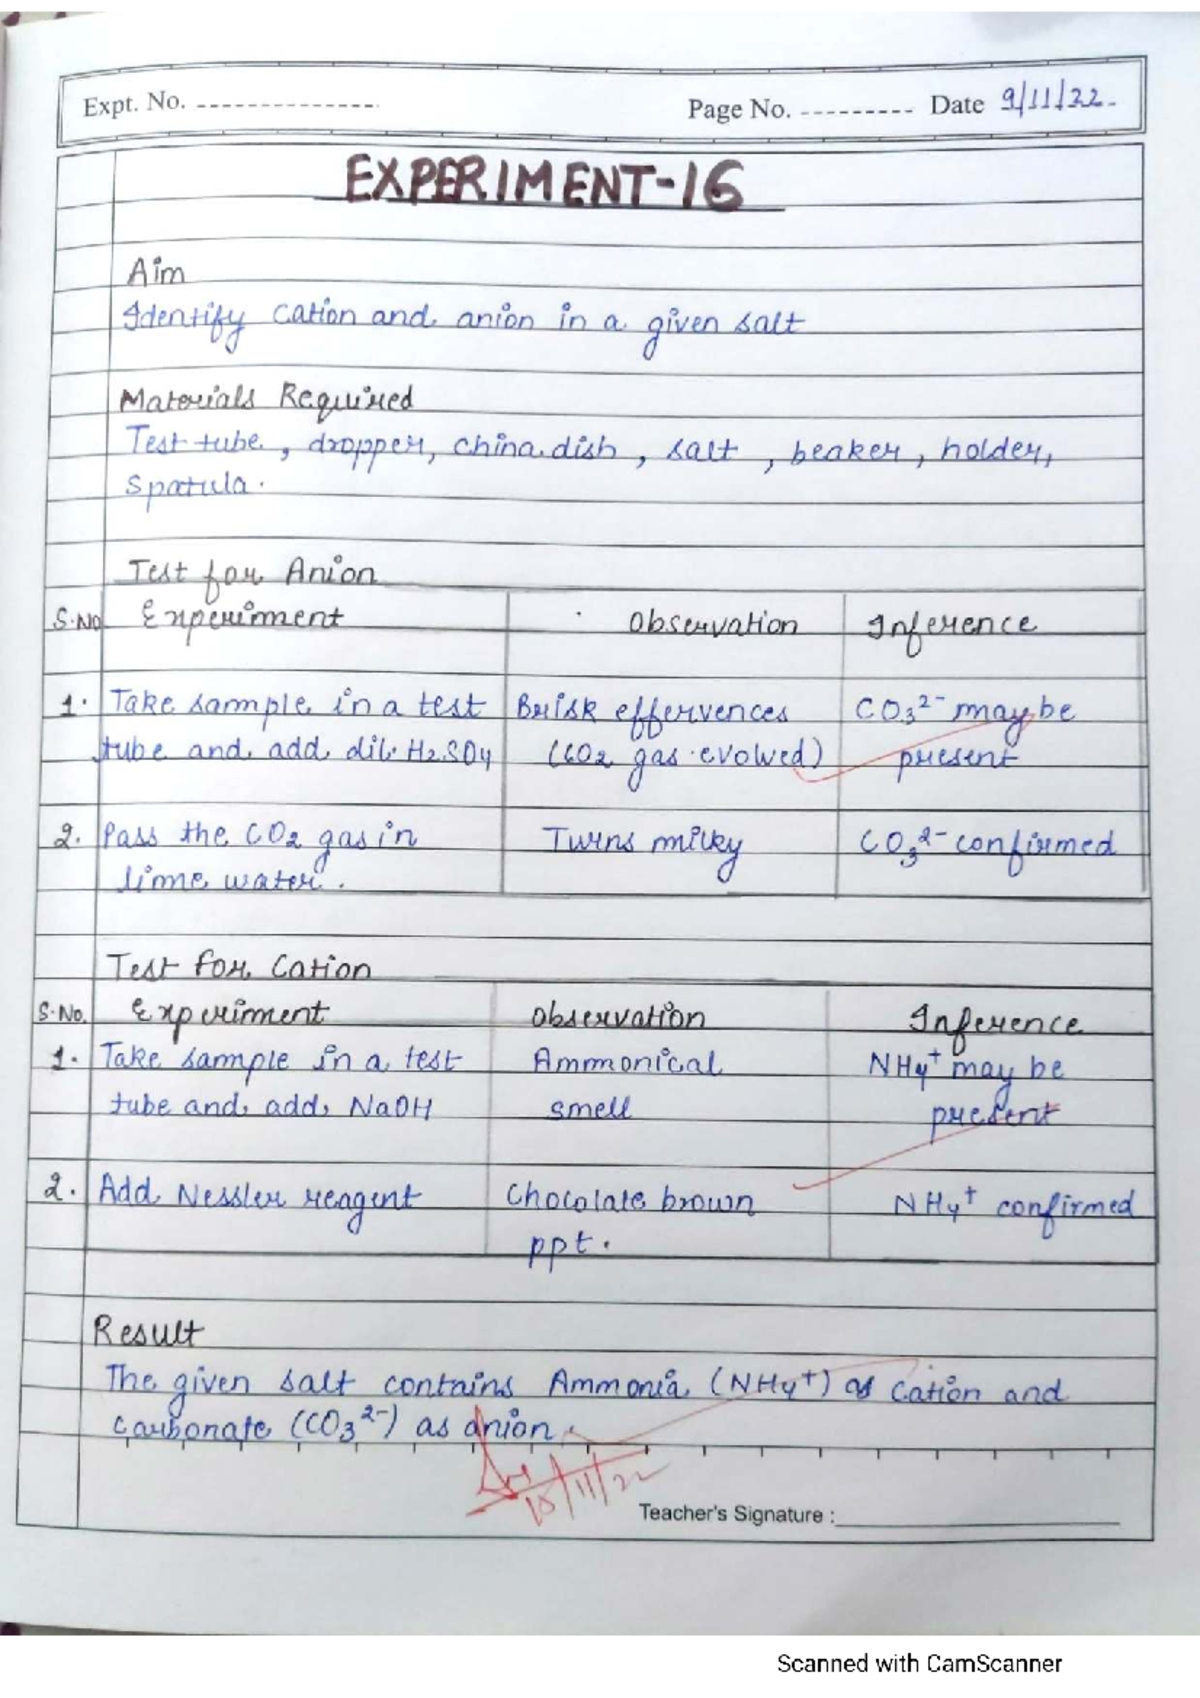 Expt. No. Page No. Date 9/11/22.
EXPERIMENT-16
Aim
Identify cation and anion in a given salt
Materials Required
Test tube, dropper, china dish, salt, beaker, holder,
spatula.
Test for Anion
S.No Experiment Observation Inference
1. Take sample in a test Brisk effervences CO3²⁻ may be
tube and add dil. H2SO4 (CO2 gas evolved) present
2. Pass the CO2 gas in Turns milky CO3²⁻ confirmed
lime water.
Test for Cation
S.No. Experiment Observation Inference
1. Take sample in a test Ammonical NH4⁺ may be
tube and add NaOH smell present
2. Add Nessler reagent Chocolate brown NH4⁺ confirmed
ppt.
Result
The given salt contains Ammonia (NH4⁺) as cation and
carbonate (CO3²⁻) as anion.
Teacher's Signature :
Scanned with CamScanner